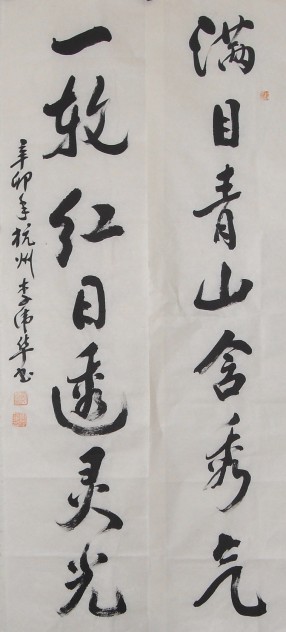 满目青山含秀气
一轮红日透灵光
辛卯年杭州李伟华书